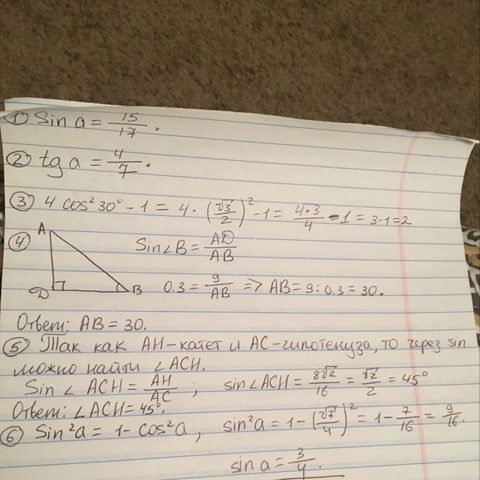 ① Sin a = 15/17.
② tg a = 4/7.
③ 4 cos²30° - 1 = 4 · (√3/2)² - 1 = 4·3/4 - 1 = 3-1=2
④ A
Sin∠B = AD/AB
D B 0.3 = 9/AB => AB = 9 : 0.3 = 30.
Ответ: AB = 30.
⑤ Так как AH-катет и AC-гипотенуза, то через sin
можно найти ∠ACH.
Sin ∠ ACH = AH/AC ; sin∠ACH = 8√2/16 = √2/2 = 45°
Ответ: ∠ACH = 45°.
⑥ Sin²a = 1 - cos²a, sin²a = 1 - (√7/4)² = 1 - 7/16 = 9/16.
sin a = 3/4.